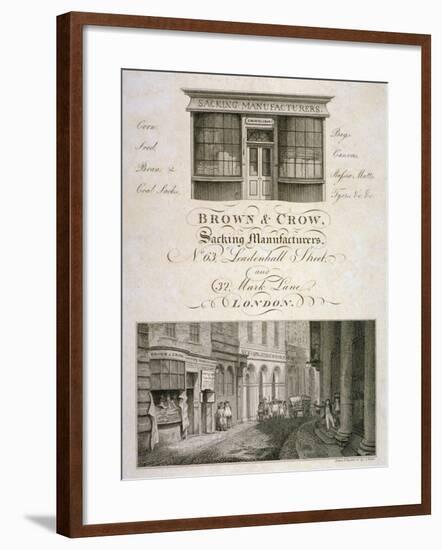 SACKING MANUFACTURERS.
Corn,
Seed,
Bean, &
Coal Sacks,
Bags
Canvas,
Russia Matts,
Tyer, &c. &c.
BROWN & CROW,
Sacking Manufacturers,
No. 63 Leadenhall Street,
and
32, Mark Lane,
LONDON.
BROWN & CROW